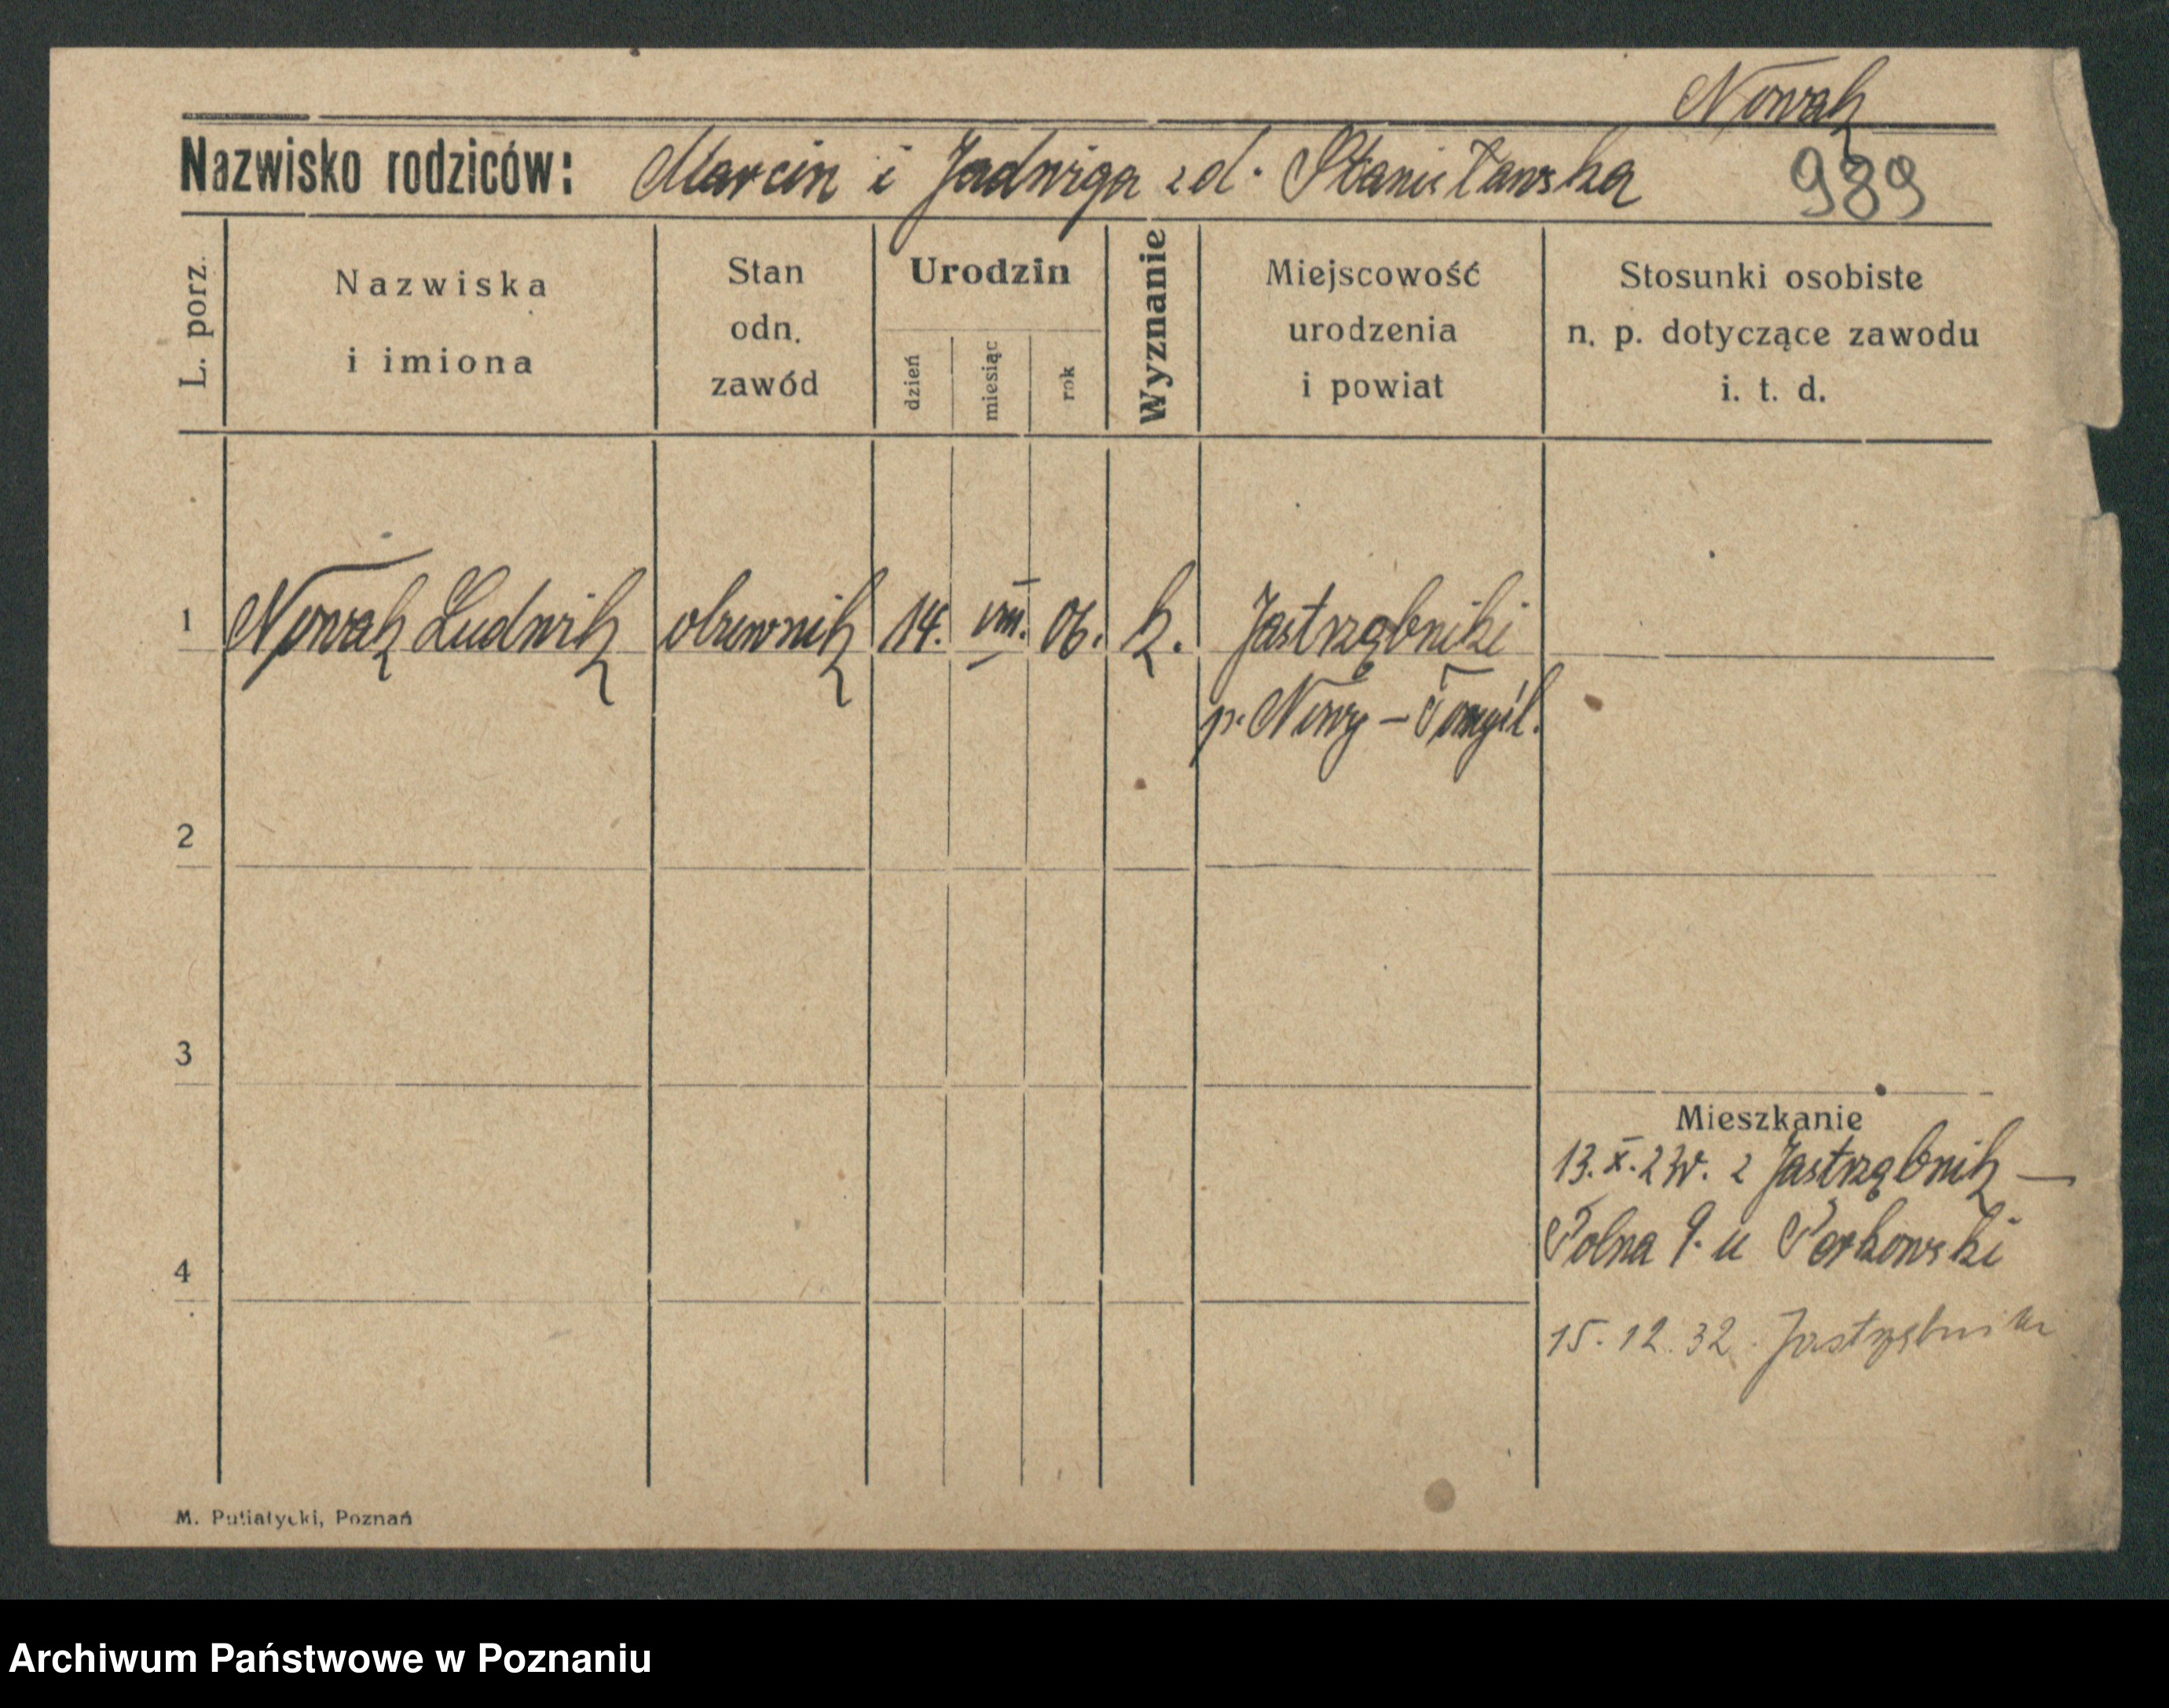 Nowak
Nazwisko rodziców: Marcin i Jadwiga zd. Stanisławska 989
L. porz.
Nazwiska
i imiona
Stan
odn.
zawód
Urodzin
dzień
miesiąc
rok
Wyznanie
Miejscowość
urodzenia
i powiat
Stosunki osobiste
n. p. dotyczące zawodu
i. t. d.
1 Nowak Ludwik 14. VIII. 06. k. Jastrzębniki
p. Nowy-Tomyśl.
2
3
Mieszkanie
13. X. z Jastrzębnik —
Polna 9. u
4
15. 12. 32. Jastrzębniki
M. Putiatycki, Poznań
Archiwum Państwowe w Poznaniu